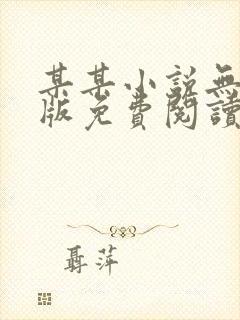 某某小説無
版免費閱讀
聶萍